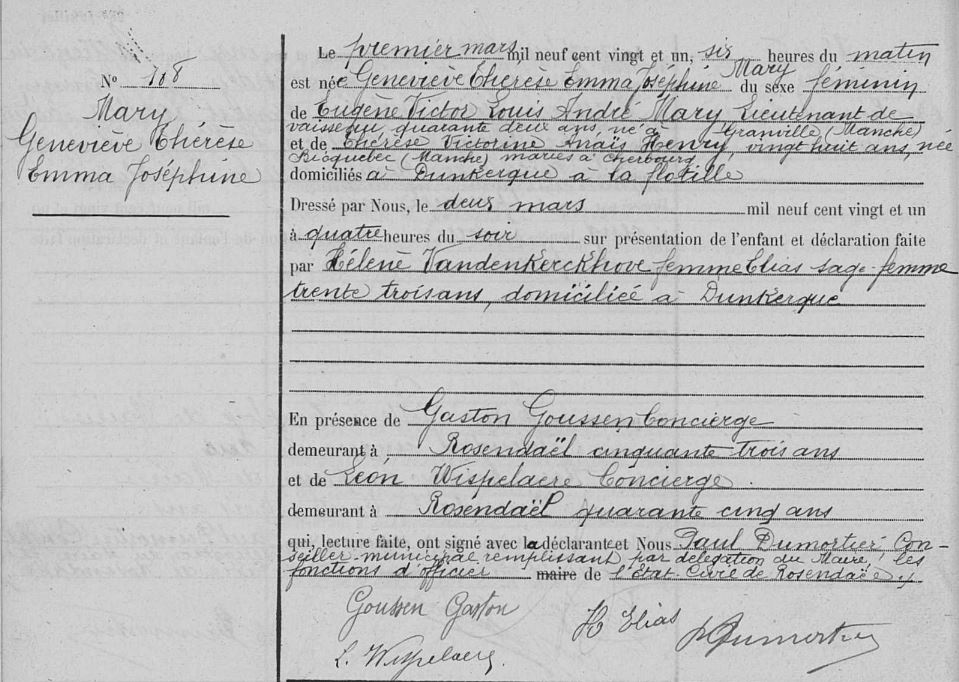 N° 108
Mary
Geneviève Thérèse
Emma Joséphine
Le premier mars, mil neuf cent vingt et un, six heures du matin
est née Geneviève Thérèse Emma Joséphine Mary du sexe féminin
de Eugène Victor Louis André Mary Lieutenant de
vaisseau, quarante deux ans, né à Granville (Manche)
et de Thérèse Victorine Anaïs Henry, vingt huit ans, née
Bricquebec (Manche) mariés à Cherbourg,
domiciliés à Dunkerque à la flotille
Dressé par Nous, le deux mars mil neuf cent vingt et un
à quatre heures du soir sur présentation de l'enfant et déclaration faite
par Hélène Vandenkerckhove femme Elias sage-femme
trente trois ans, domiciliée à Dunkerque
En présence de Gaston Goussen Concierge
demeurant à Rosendaël cinquante trois ans
et de Léon Wispelaere Concierge
demeurant à Rosendaël quarante cinq ans
qui, lecture faite, ont signé avec la déclarante et Nous Paul Dumortier Con-
seiller municipal remplissant par délégation du Maire, les
fonctions d'officier maire de l'État Civil de Rosendaël
Goussen Gaston
H Elias
P Dumortier
L. Wispelaere